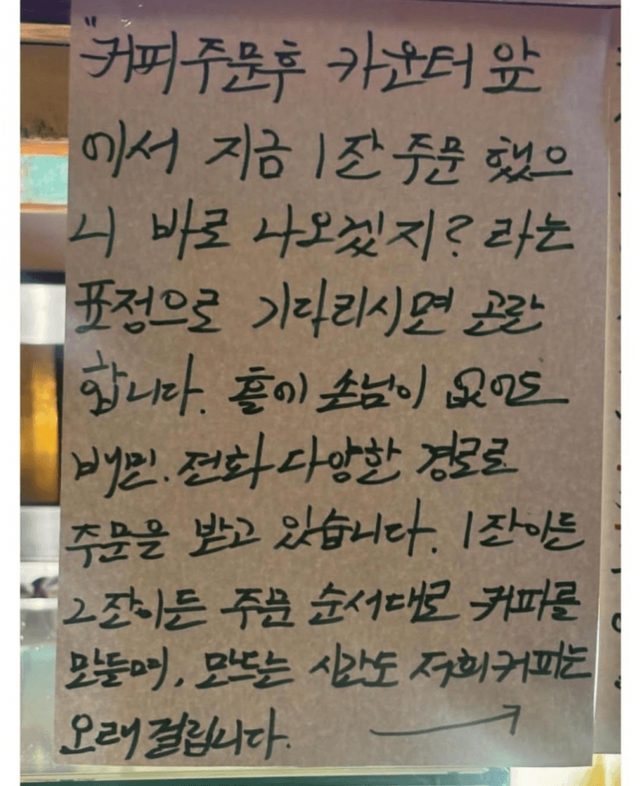 "커피주문후 카운터 앞
에서 지금 1잔 주문 했으
니 바로 나오겠지? 라는
표정으로 기다리시면 곤란
합니다. 홀에 손님이 없어도
배민. 전화 다양한 경로로
주문을 받고 있습니다. 1잔이든
2잔이든 주문 순서대로 커피를
만들며, 만드는 시간도 저희커피는
오래걸립니다. →